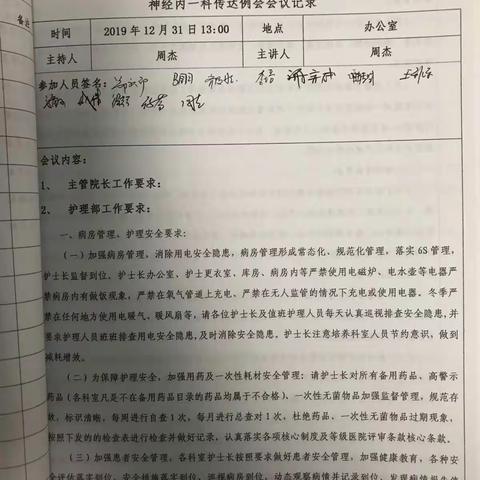 神经内一科传达例会会议记录
备注
时间 2019 年 12 月 31 日 13:00 地点 办公室
主持人 周杰 主讲人 周杰
参加人员签名:
会议内容:
1、 主管院长工作要求:
2、 护理部工作要求:
一、病房管理、护理安全要求:
(一)加强病房管理,消除用电安全隐患,病房管理形成常态化、规范化管理,落实 6S 管理,
护士长监督到位。护士长办公室、护士更衣室、库房、病房内等严禁使用电磁炉、电水壶等电器严
禁病房内有做饭现象,严禁在氧气管道上充电、严禁在无人监管的情况下充电或使用电器。冬季严
禁在任何地方使用电暖气、暖风扇等,请各位护士长及值班护理人员每天认真巡视排查安全隐患,并
要求护理人员班班排查用电安全隐患,及时消除安全隐患。护士长注意培养科室人员节约意识,做到
减耗增效。
(二)为保障护理安全,加强用药及一次性耗材安全管理:请护士长对所有备用药品、高警示
药品(各科室凡是不在备用药品目录的药品均属于不合格)、一次性无菌物品加强监督管理,规范存
放,标识清晰,每周进行自查 1 次,每月进行总查对 1 次,杜绝药品、一次性无菌物品过期现象,
按照下发的的检查表进行检查并做好记录,认真落实各项核心制度及等级医院评审条款核心条款。
(三)加强患者安全管理,各科室护士长按照要求做好患者安全管理,加强健康教育,各种安
全评估落实到位,安全措施落实到位,巡视病房到位,动态观察病情并记录到位,发现病情报告值